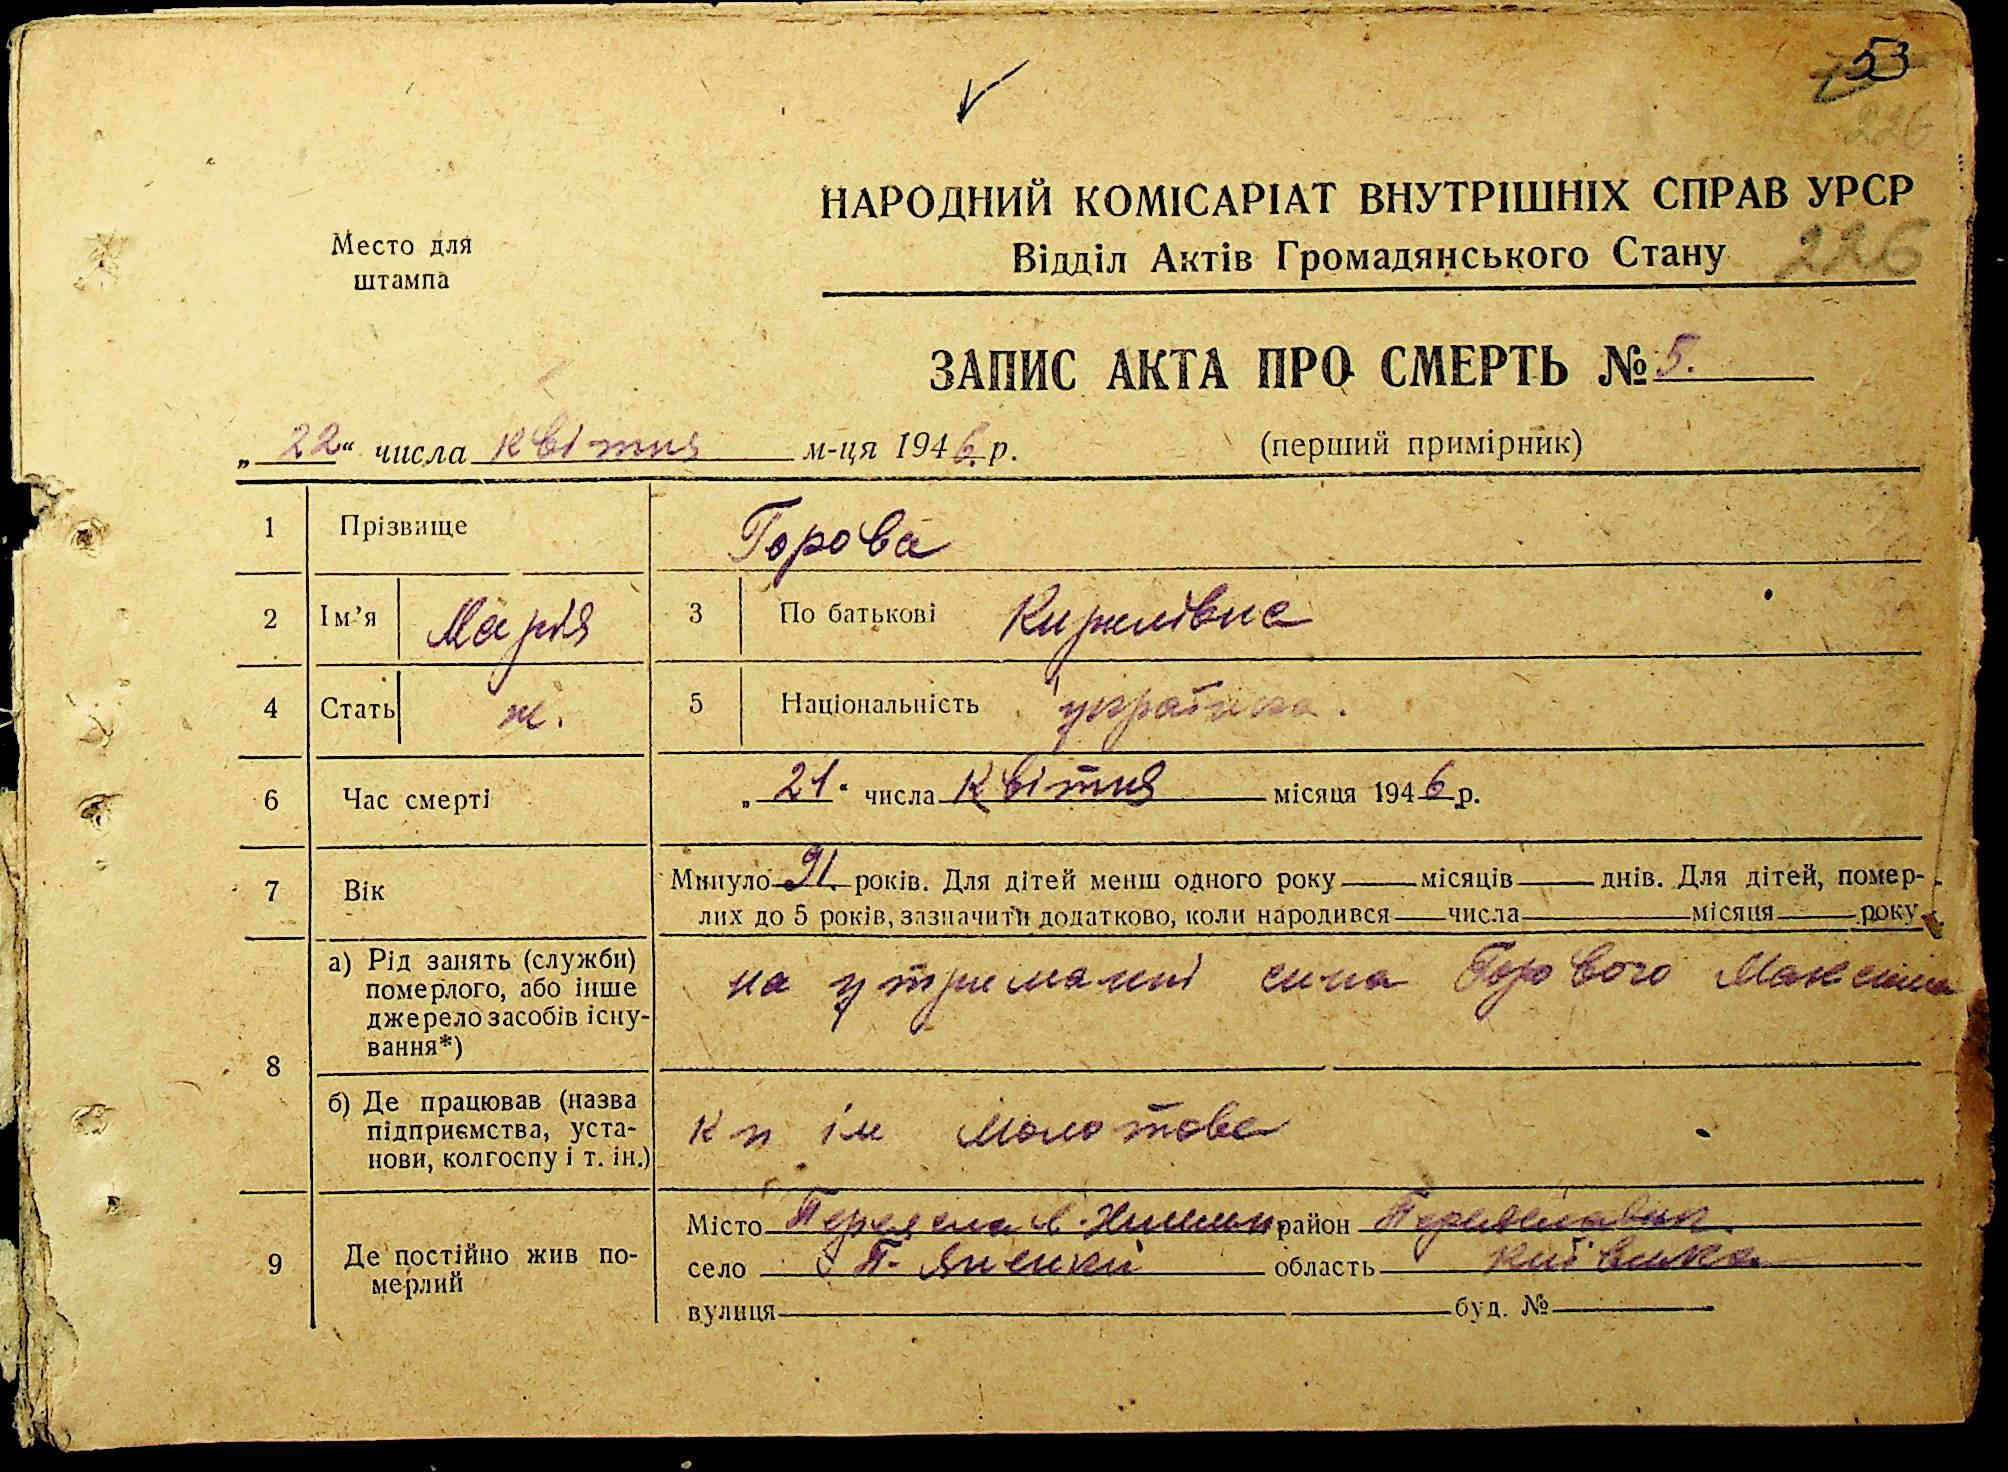 53
226
НАРОДНИЙ КОМІСАРІАТ ВНУТРІШНІХ СПРАВ УРСР
Место для
штампа
Відділ Актів Громадянського Стану 226
ЗАПИС АКТА ПРО СМЕРТЬ № 5.
„22“ числа квітня м-ця 1946 р. (перший примірник)
1 Прізвище Горова
2 Ім’я Марія 3 По батькові Кирилівна
4 Стать ж. 5 Національність українка.
6 Час смерті „21“ числа квітня місяця 1946 р.
7 Вік Минуло 91. років. Для дітей менш одного року — місяців — днів. Для дітей, помер-
лих до 5 років, зазначити додатково, коли народився — числа — місяця — року
8 а) Рід занять (служби) померлого, або інше джерело засобів існу-вання*) на утриманні сина Горового Максима
б) Де працював (назва підприємства, уста-нови, колгоспу і т. ін.) к п ім Молотова
9 Де постійно жив по-мерлий
Місто Переяслав-Хмельн. район Переяславськ.
село П. Яненки область Київська
вулиця буд. №